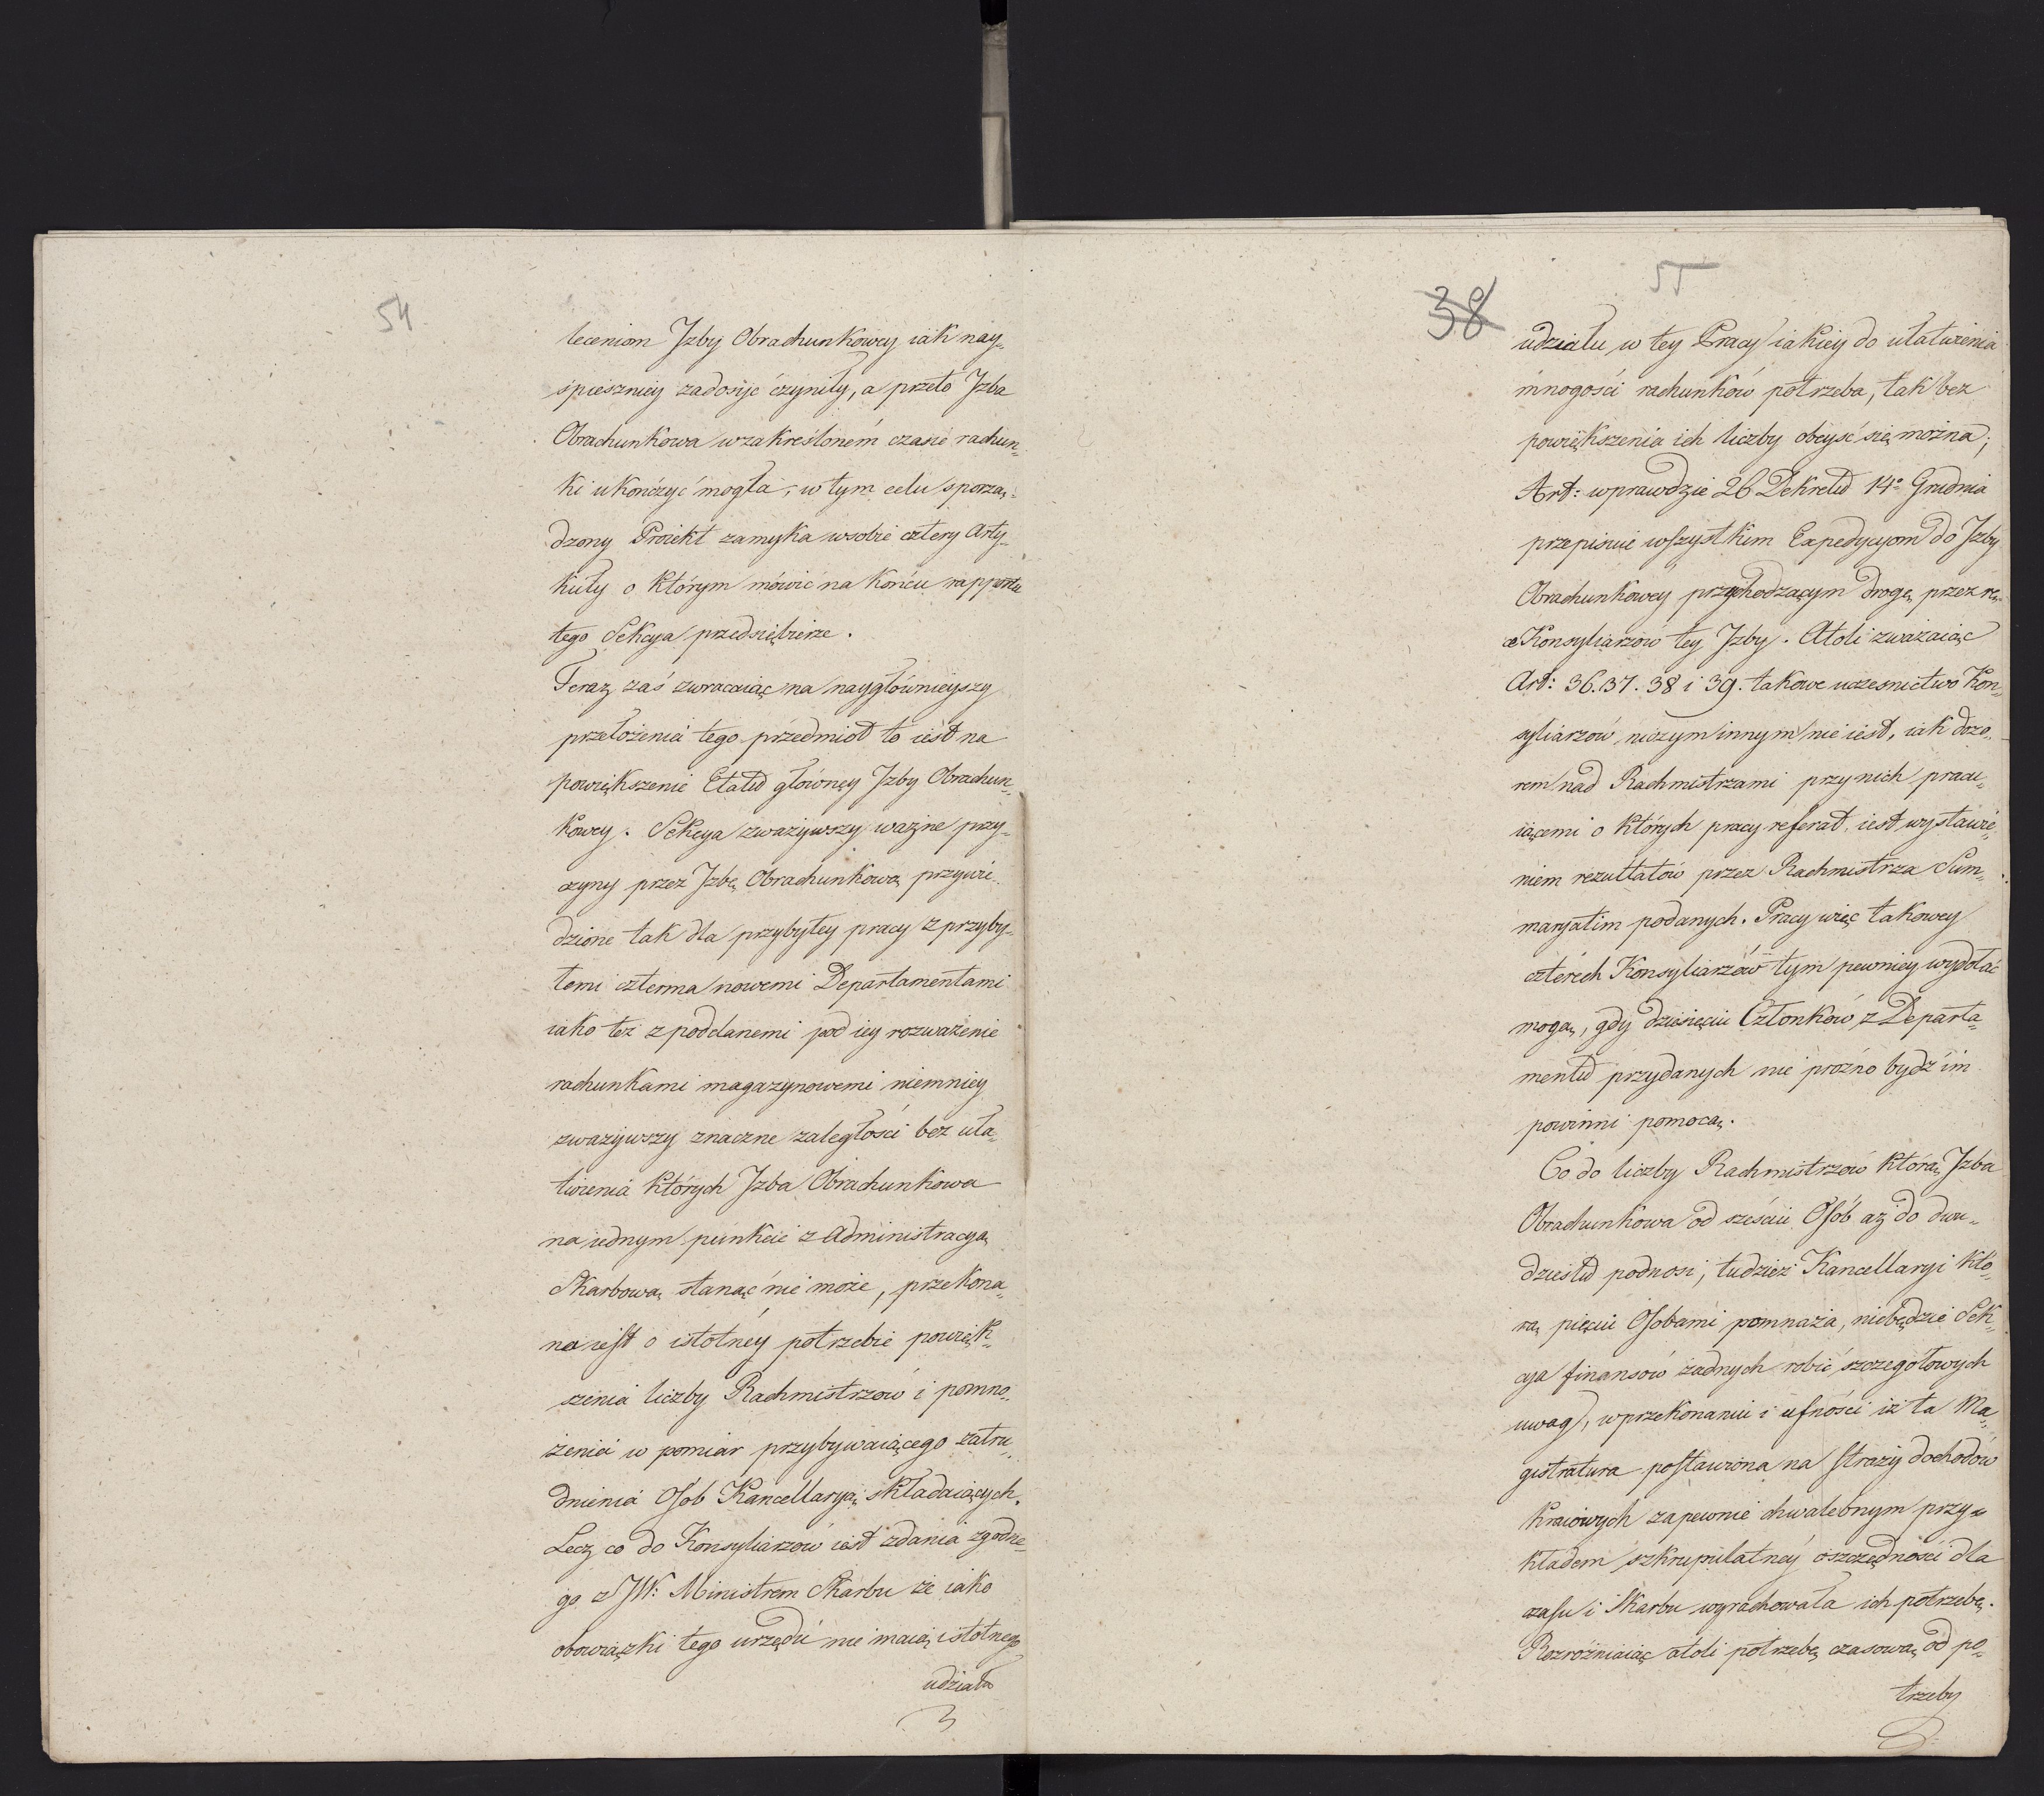 54
leceniom Jzby Obrachunkowey iak nay„
śpieszniey zadosyć czyniły, a przeto Jzba
Obrachunkowa w zakreślonem czasie rachun„
ki ukończyć mogła; w tym celu sporzą„
dzony Proiekt zamyka w sobie cztery Arty„
kuły o którym mówić na końcu rapportu
tego Sekcya przedsiębierze.
Teraz zaś zwracaiąc na naygłównieyszy
przełożenia tego przedmiot to iest na
powiększenie Etatu główney Jzby Obrachun„
kowey. Sekcya zważywszy ważne przy„
czyny przez Jzbę Obrachunkową przywie„
dzione tak dla przybyłey pracy z przyby„
łemi czterma nowemi Departamentami
iako też z poddanemi pod iey rozważenie
rachunkami magazynowemi niemniey
zważywszy znaczne zaległości bez uła„
twienia których Jzba Obrachunkowa
na iednym punkcie z Administracyą
Skarbową stanąć nie może, przekona„
na iest o istotney potrzebie powięk„
szenia liczby Rachmistrzów i pomno„
żenia w pomiar przybywaiącego zatru„
dnienia Osob Kancellaryą składaiących.
Lecz co do Konsyliarzów iest zdania zgodne„
go z JW: Ministrem Skarbu że iako
obowiązki tego urzędu nie maią istotnego
udziału
55
38
udziału w tey Pracy iakiey do ułatwienia
mnogości rachunków potrzeba, tak bez
powiększenia ich liczby obeyść się można;
Art: wprawdzie 26 Dekretu 14o Grudnia
przepisuie wszystkim Expedycyom do Jzby
Obrachunkowey przychodzącym drogę przez rę„
ce Konsyliarzów tey Jzby. Atoli zważaiąc
Art: 36. 37. 38 i 39. takowe uczesnictwo Kon„
syliarzów, niczym innym nie iest, iak dozo„
rem nad Rachmistrzami przy nich pracu„
iącemi o których pracy referat iest wystawie„
niem rezultatów przez Rachmistrza Sum„
maryatim podanych. Pracy więc takowey
czterech Konsyliarzów tym pewniey wydołać
mogą, gdy dziesięciu Członków z Departa„
mentu przydanych nie próżno bydź im
powinni pomocą.
Co do liczby Rachmistrzów którą Jzba
Obrachunkowa od sześciu Osób aż do dwu„
dziestu podnosi, tudzież Kancellaryi któ„
rą pięciu Osobami pomnaża, niebędzie Sek„
cya finansów żadnych robić szczegółowych
uwag, w przekonaniu i ufności iż ta Ma„
gistratura postawiona na straży dochodów
kraiowych zapewnie chwalebnym przy„
kładem szkrupulatney oszczędności dla
czasu i Skarbu wyrachowała ich potrzebę.
Rozróżniaiąc atoli potrzebę czasową od po„
trzeby